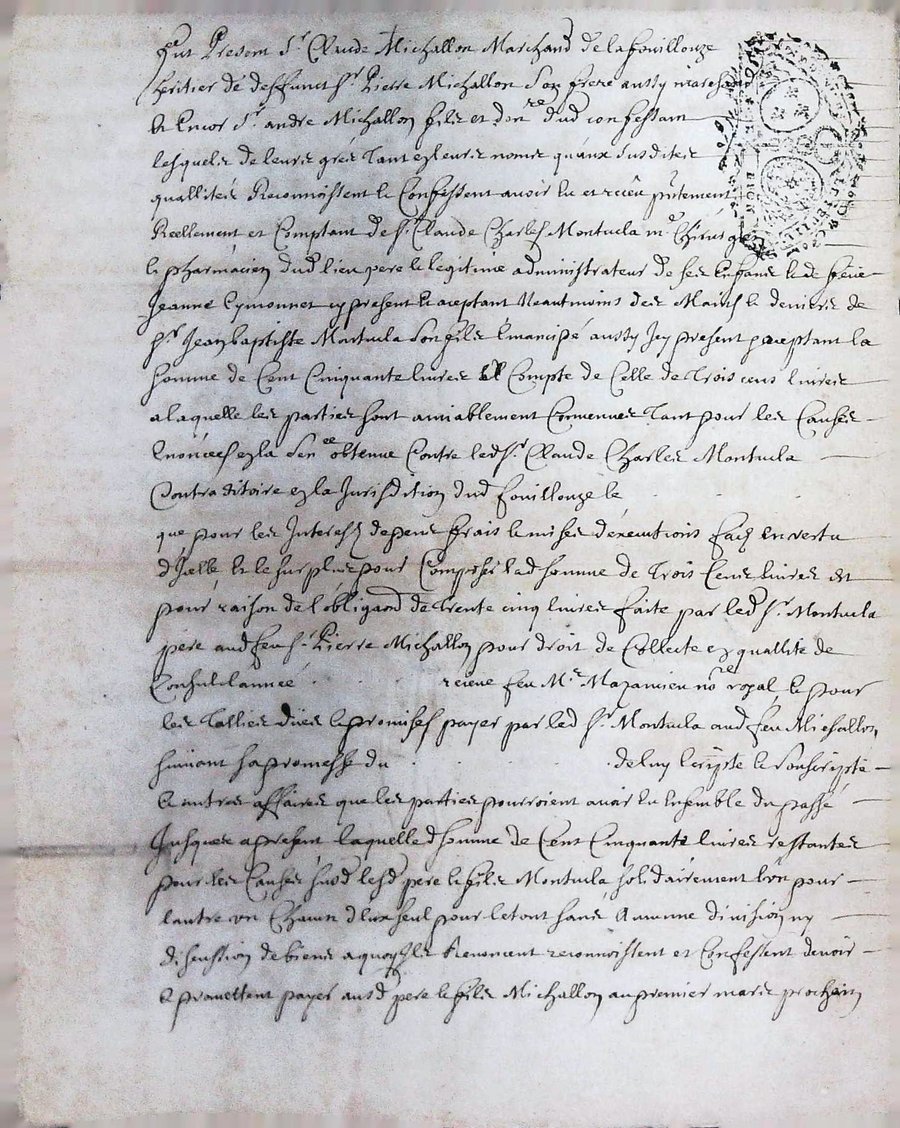 Fut Present Sr. Claude Michallon Marchand de la fouillouze
heritier de deffunct Sr. Pierre Michallon son frere aussy march
& Encor Sr. andre Michallon fils et don.re dud confessant
lesquels de leurs gréz tant en leurs noms quaux susdites
quallités Reconnoissent & Confessent avoir eu et receu pntement
Reellement et Comptant de Sr. Claude Charles Montucla me. Chirurgien
& pharmacien dud lieu pere & legitime administrateur de ses Enfans & de feüe
Jeanne Eymonnet present & aceptant Neautmoins des Mains & deniers de
Sr. Jean baptiste Montucla son fils Emancipé aussy Icy present aceptant la
somme de Cent Cinquante livres Compte de Celle de Trois cens livres
a laquelle les parties sont amiablement Convenues Tant pour les Causes
Enoncées en la Sen.ce obtenue Contre led Sr. Claude Charles Montucla
Contraditoire en la Jurisdition dud fouillouze le
que pour les Interests depens frais & mises dexecutions faiz en vertu
d'Jcelle Et le surplus pour Composer lad somme de Trois Cens livres est
pour raison de l'obligaōn de trente cinq livres faite par led Sr. Montucla
pere aud feu Sr. Pierre Michallon pour droit de Collecte en quallité de
Consul lannée receue feu Me. Mazamieu nore royal & pour
les Tallies dües & promises payer par led Sr. Montucla aud feu Michallon
suivant sa promesse du de luy Ecripte & Souscripte
& autres affaires que les parties pourroient avoir Eu Ensemble du passé
Jusques a present laquelle d somme de Cent Cinquante livres restantes
pour les Causes susd lesd pere & fils Montucla solidairement lun pour
lautre un Chacun d'eux seul pour le tout sans Aucune division ny
discussion de biens a quoy ils Renoncent reconnoissent et Confessent devoir
& promettent payer ausd pere & fils Michallon au premier mars prochain